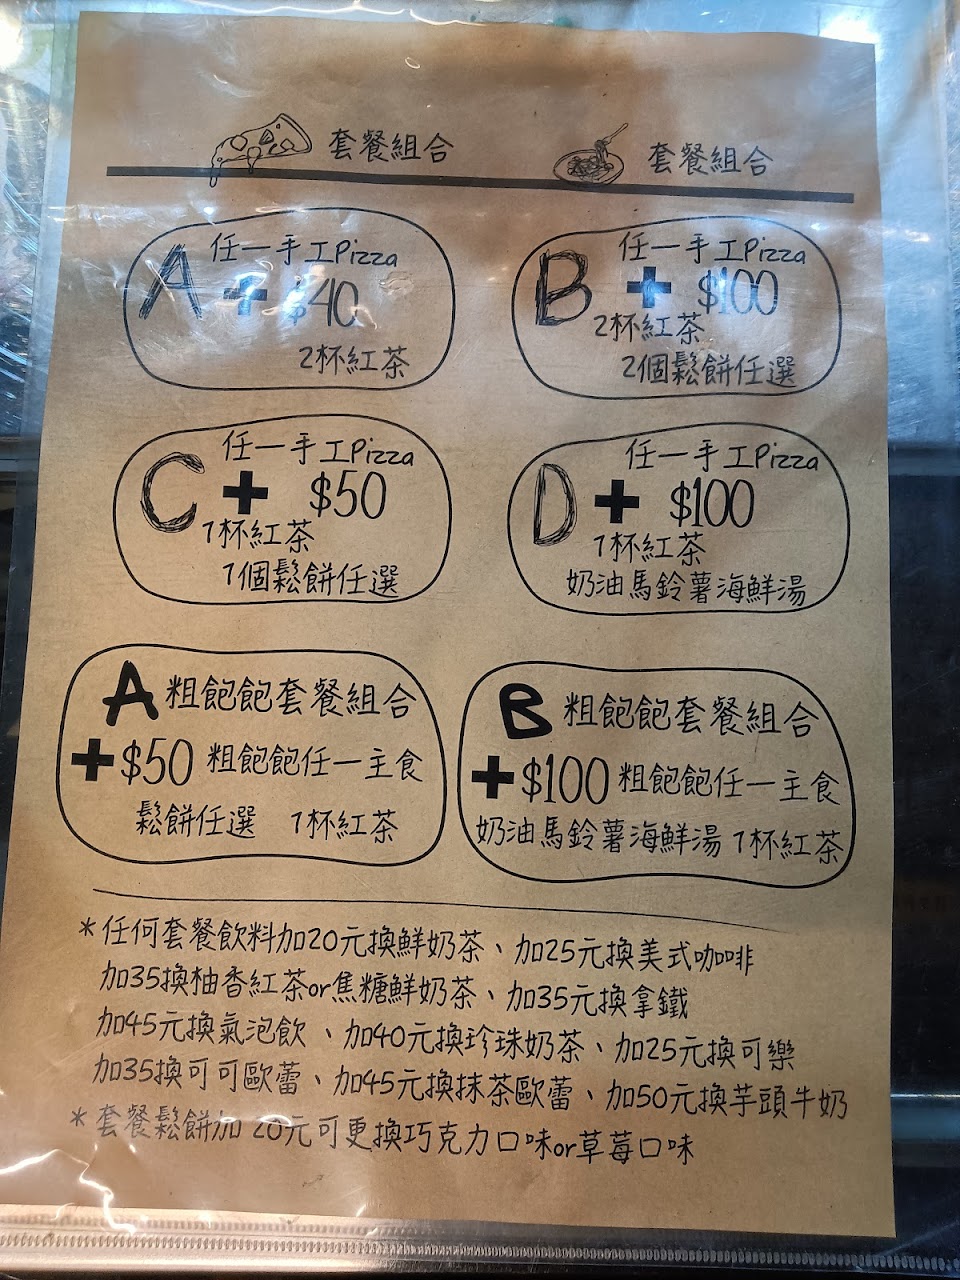 套餐組合
套餐組合
A
任一手工Pizza
+ $40
2杯紅茶
B
任一手工Pizza
+ $100
2杯紅茶
2個鬆餅任選
C
任一手工Pizza
+ $50
1杯紅茶
1個鬆餅任選
D
任一手工Pizza
+ $100
1杯紅茶
奶油馬鈴薯海鮮湯
A 粗飽飽套餐組合
+$50 粗飽飽任一主食
鬆餅任選 1杯紅茶
B 粗飽飽套餐組合
+$100 粗飽飽任一主食
奶油馬鈴薯海鮮湯 1杯紅茶
*任何套餐飲料加20元換鮮奶茶、加25元換美式咖啡
加35換柚香紅茶or焦糖鮮奶茶、加35元換拿鐵
加45元換氣泡飲、加40元換珍珠奶茶、加25元換可樂
加35換可可歐蕾、加45元換抹茶歐蕾、加50元換芋頭牛奶
*套餐鬆餅加20元可更換巧克力口味or草莓口味